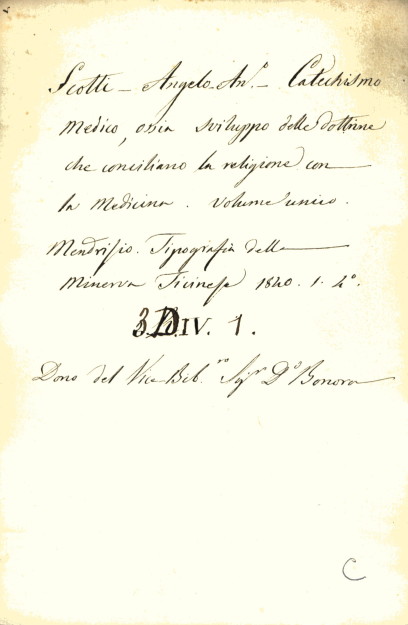 Scotti - Angelo-An.° - Catechismo
Medico, ossia sviluppo delle dottrine
che conciliano la religione con
la Medicina. Volume unico.
Mendrisio. Tipografia della
Minerva Ticinese 1840. 1. 4.°
DIV. 1.
Dono del Vice-Bib.ro Sig.r D.r Bonora
C